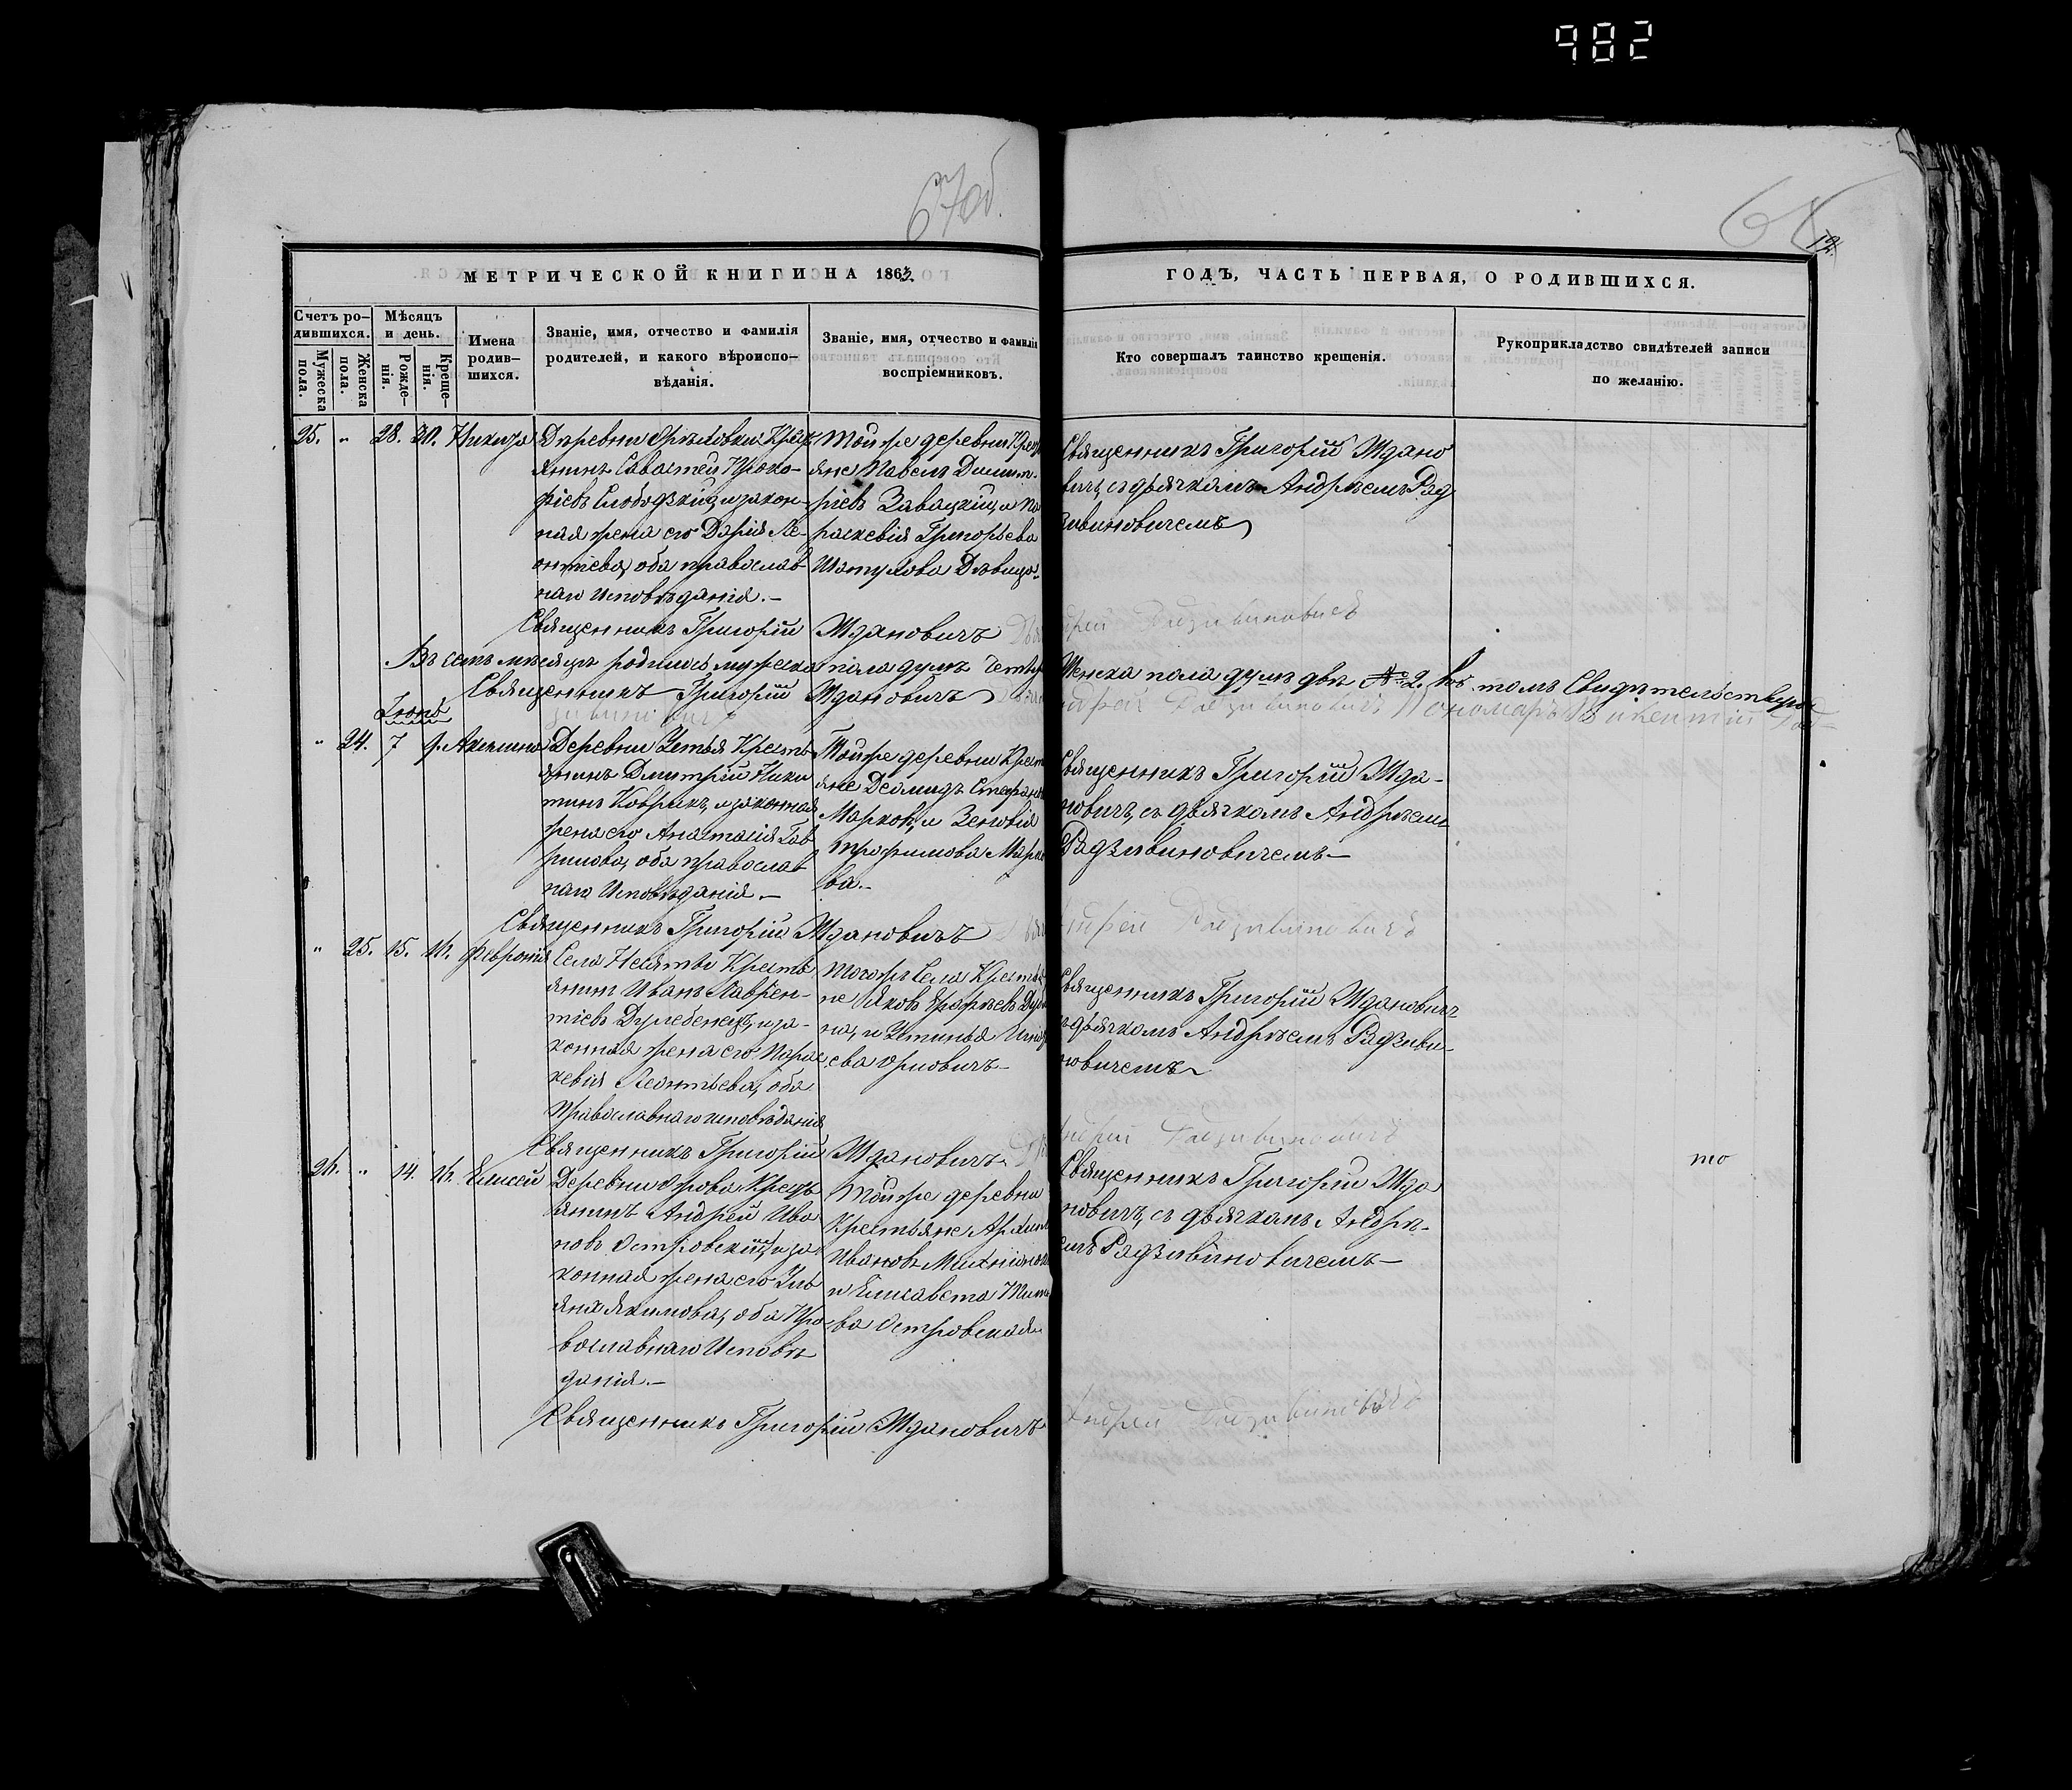 982
67об.
12
МЕТРИЧЕСКОЙ КНИГИ НА 1863
ГОДЪ, ЧАСТЬ ПЕРВАЯ, О РОДИВШИХСЯ.
Счетъ ро-
дившихся.
Мужеска
пола.
Женска
пола.
Мѣсяцъ
и день.
Рожде-
нія.
Креще-
нія.
Имена
родив-
шихся.
Званіе, имя, отчество и фамилія
родителей, и какого вѣроиспо-
вѣданія.
Званіе, имя, отчество и фамилія
воспріемниковъ.
Кто совершалъ таинство крещенія.
Рукоприкладство свидѣтелей записи
по желанію.
25. " 28. 30. Никита
Деревни Крест
янинъ Савастей Проко-
фіевъ Слободскій, и закон-
ная жена его Дарія Ле-
онтіева, оба православ
наго Исповѣданія.-
Тойже деревни Крест
яне Павелъ Димит-
ріевъ Завацкій, и Па
раскевія Григорьева
Дѣвица
Священникъ Григорій Ждано
вичъ, съ дьячкомъ Андреемъ Рад
зивиновичемъ
Священникъ Григорій Ждановичъ
Андрей Радзивиновичъ
Въ семъ мѣсяцѣ родилось мужеска пола душъ четыре
Женска пола душъ двѣ № 2. въ томъ Свидѣтельствуемъ
Священникъ Григорій Ждановичъ
Андрей Радзивиновичъ Пономарь Викентій Рад-
зивиновичъ
Іюнь
" 24. 7 9. Акилина
Деревни Устья Кресть
янинъ Дмитрій Ники
тинъ Коврикъ, и законная
жена его Анастасія Гав
рилова, оба православ
наго Исповѣданія.-
Тойже деревни Крест
яне Деомидъ Стефановъ
Марковъ, и Зеновія
Трофимова Марко
ва.-
Священникъ Григорій Жда-
новичъ, съ дьячкомъ Андреемъ
Радзивиновичемъ-
Священникъ Григорій Ждановичъ
Андрей Радзивиновичъ
" 25. 15. 16. Февронія
Села Несяты Кресть
янинъ Иванъ Лаврен-
тіевъ Дулебенецъ, и за-
конная жена его Парас
кевія Леонтьева, оба
Православнаго исповѣданія
Тогожъ Села Крестья
не Яковъ
на, и Устинья
Священникъ Григорій Ждановичъ
съ дьячкомъ Андреемъ Радзиви-
новичемъ
Священникъ Григорій Ждановичъ
Андрей Радзивиновичъ
26. " 14. 16. Елисей
Деревни Острова Кресть
янинъ Андрей Ива
новъ Островскій, и за-
конная жена его Уль
яна Якимова, оба Пра
вославнаго Исповѣ
данія.-
Тойже деревни
Крестьяне
Ивановъ
и Елисавета
ва Островская
Священникъ Григорій Жда
новичъ, съ дьячкомъ Андре-
емъ Радзивиновичемъ-
то
Священникъ Григорій Ждановичъ
Андрей Радзивиновичъ